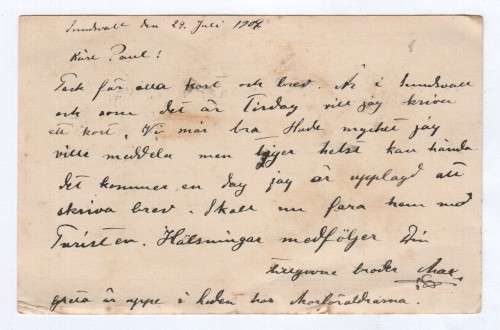 Sundsvall den 29. Juli 1904
Käre Paul!
Tack för alla kort och bref. Är i Sundsvall
och som det är Tisdag vill jag skriva
ett kort. Vi mår bra. Hade mycket jag
ville meddela men tiger helst kan hända
det kommer en dag jag är upplagd att
skriva bref. Skall nu fara hem med
Turisten. Hälsningar medföljer Din
tillgivne broder Max
Greta är uppe i hos Morföräldrarna.